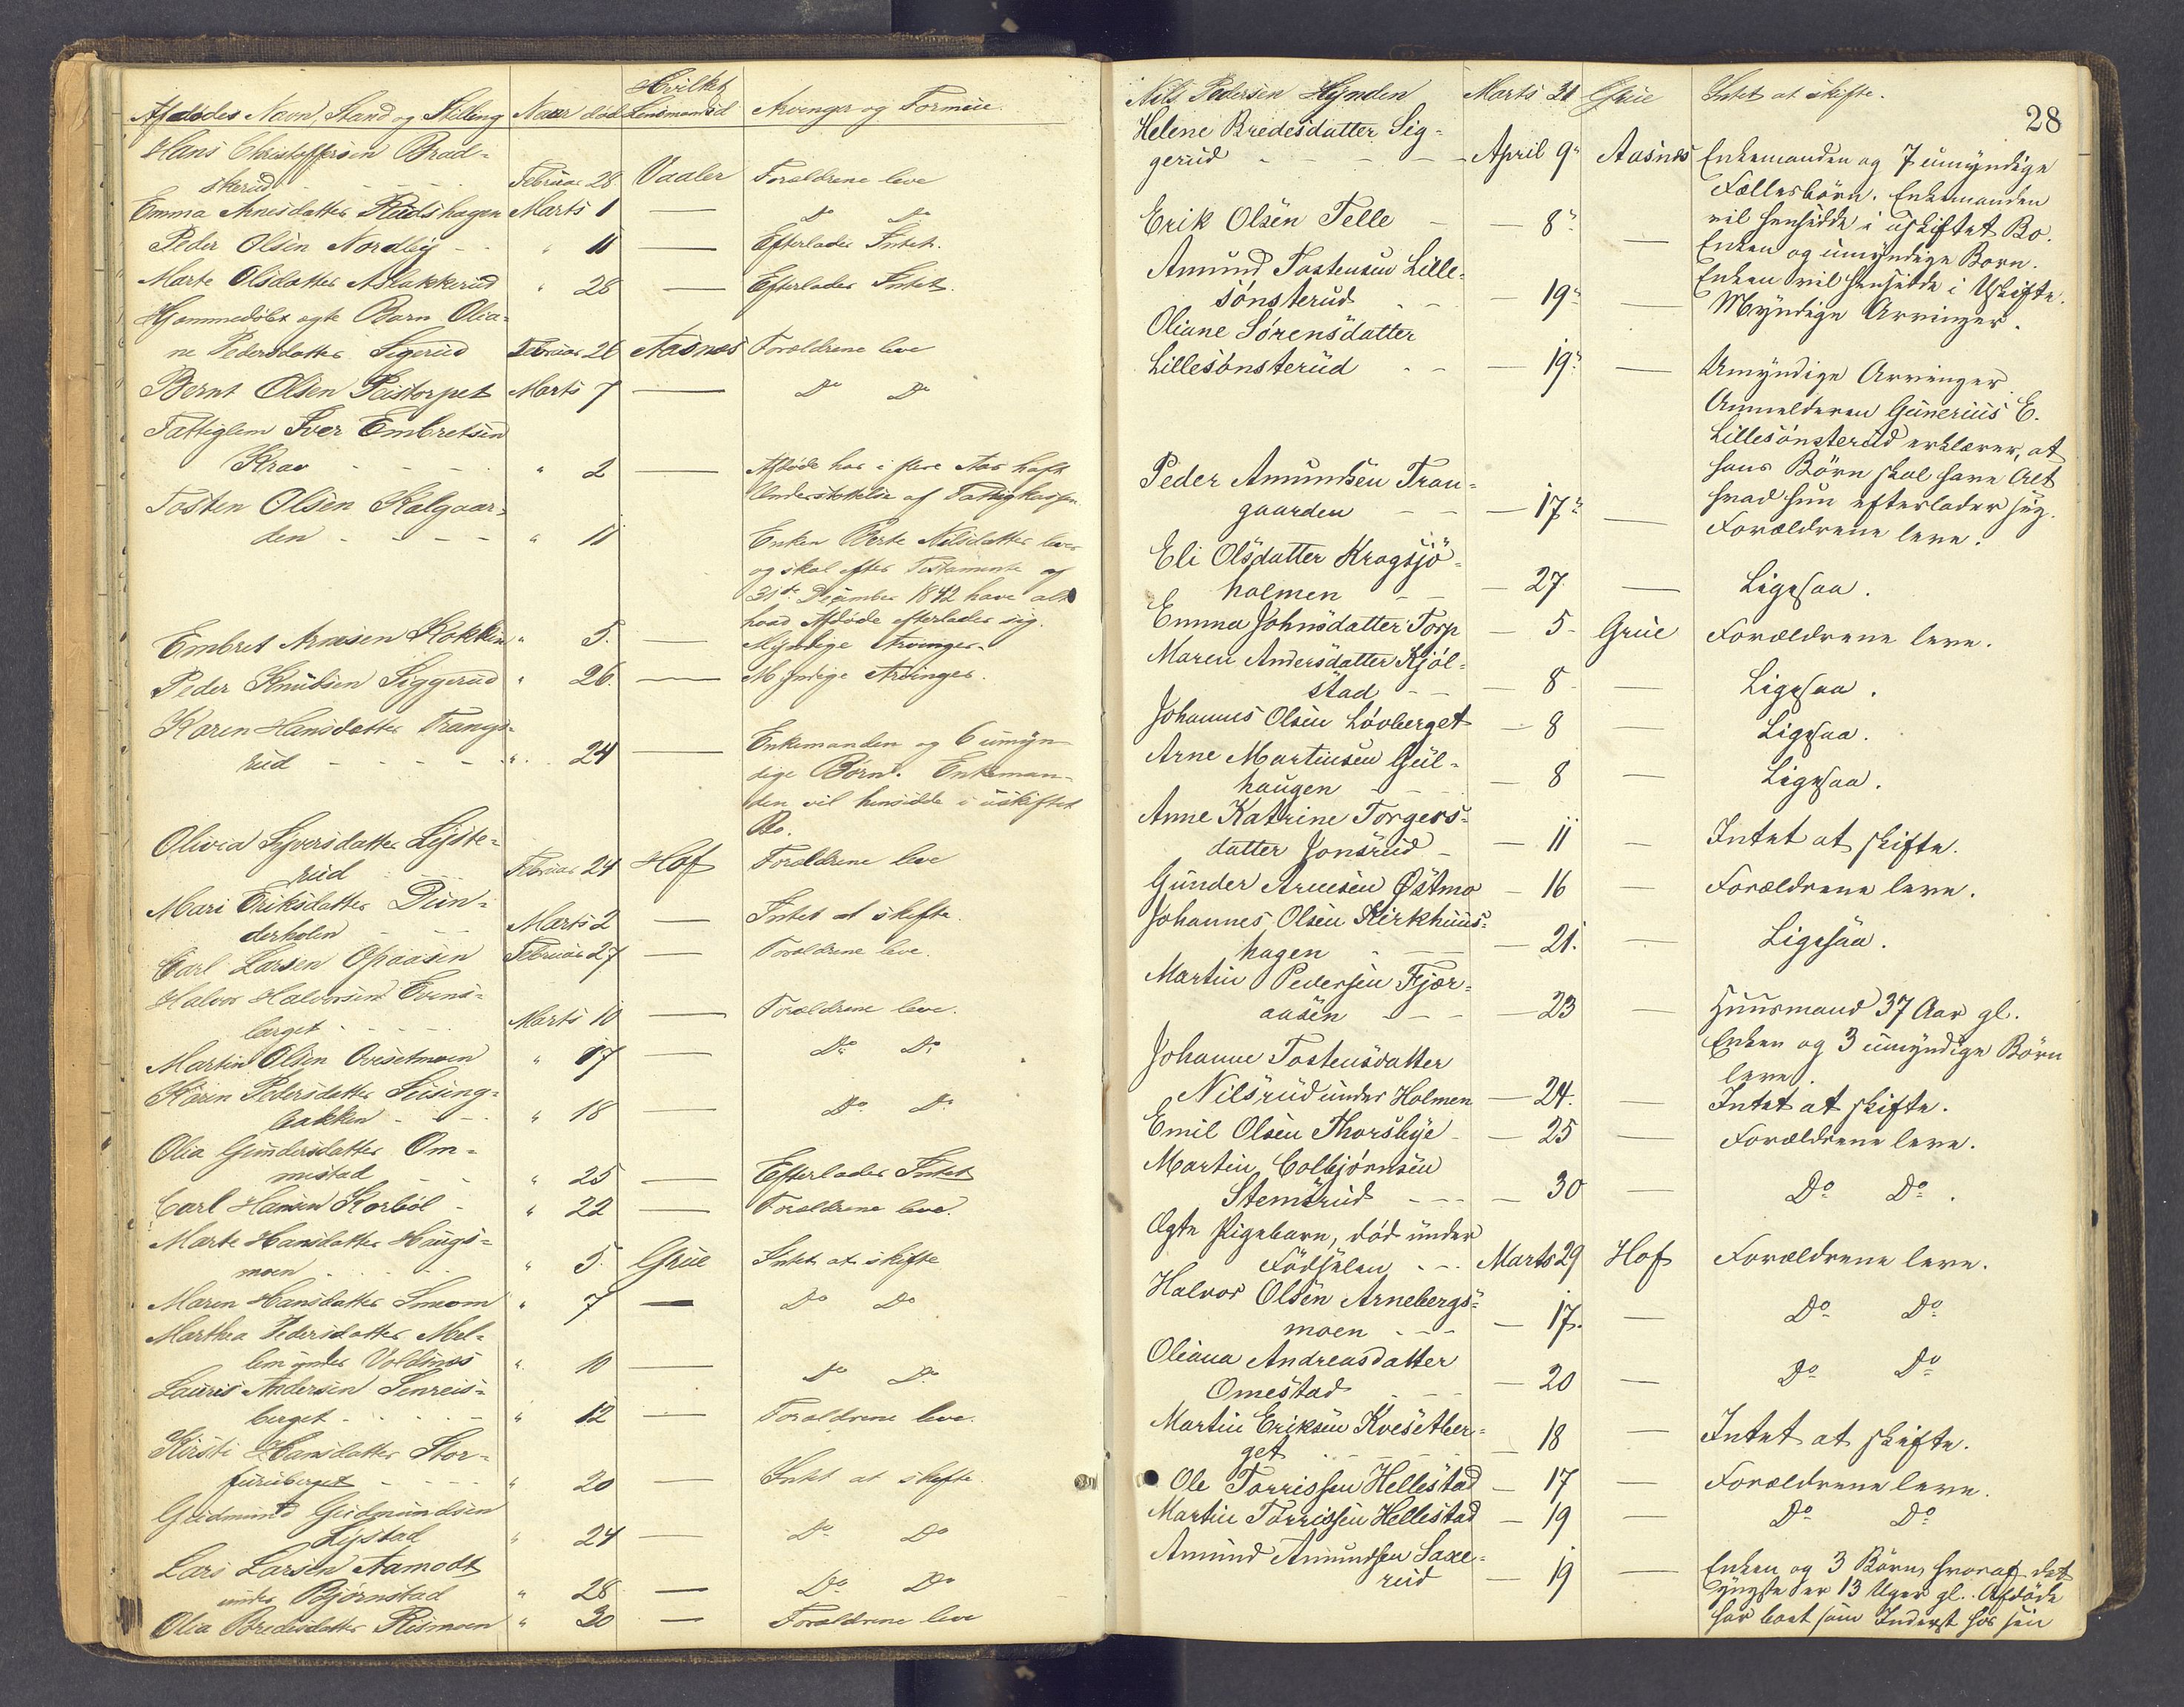 Hvilket
Afdødes Navn, Stand og Stilling Naar død Lensmandsd Arvinger og Formue
Hans Christoffersen Brad-
skerud - - - Februar 28 Vaaler Forældrene leve
Emma Arnesdatter Rudshagen Marts 1 — Do Do
Peder Olsen Nordby - - " 11 — Efterlader Intet.
Marte Olsdatter Aslakkerud " 28 — Efterlader Intet.
Hjemmedøbt ægte Barn Olia-
ne Pedersdatter Sigerud Februar 26 Aasnes Forældrene leve
Bernt Olsen Peistorpet Marts 7 — Do Do
Fattiglem Iver Embretsen
Krav - - - " 2 — Afdøde har i flere Aar haft
Understøttelse af Fattigkassen
Tosten Olsen Kalgaar-
den - - - - " 11 Enken Berte Nilsdatter lever
og skal efter Testamente af
31te December 1842 have alt
hvad Afdøde efterlader sig.
Embret Arnesen Kokkin " 5. — Myndige Arvinger.
Peder Knudsen Siggerud " 26. — Myndige Arvinger.
Karen Hansdatter Trangs-
rud - - - - " 24 — Enkemanden og 6 umyn-
dige Børn. Enkeman-
den vil hensidde i uskiftet
Bo.
Olivia Syversdatter Lyste-
rud Februar 24 Hof Forældrene leve
Mari Eriksdatter Dun-
derholen - - Marts 2 — Intet at skifte.
Carl Larsen Opaasen Februar 27 — Forældrene leve.
Halvor Halvorsen Evens-
berget - - - Marts 10 — Forældrene leve.
Martin Olsen Overetmoen " 17 — Do Do
Karen Pedersdatter Susing-
bakken - - " 18 — Do Do
Olia Gundersdatter Om-
mestad - - " 25 — Efterlader Intet
Carl Hansen Korbøl - " 22 — Forældrene leve.
Marte Hansdatter Haugs-
moen - - - " 5. Grue Intet at skifte
Maren Hansdatter Smeom " 7 — Do Do
Marthea Pedersdatter Mel-
lem under Voldnes " 10 — Do Do
Lauris Andersen Senreis-
berget - - - " 12 — Forældrene leve.
Kirsti Hansdatter Stor-
furuberget - - - " 20 — Intet at skifte.
Gudmund Gudmundsen
Lystad " 24 — Do Do
Lars Larsen Aamodt
under Bjørnstad " 28 — Do Do
Olia Bredesdatter Rismoen " 30 — Forældrene leve
28
Nils Pedersen Hynden Marts 31 Grue Intet at skifte.
Helene Bredesdatter Sig-
gerud - - - - April 9" Aasnes Enkemanden og 7 umyndige
Fællesbørn. Enkemanden
vil hensidde i uskiftet Bo.
Erik Olsen Telle - — 8" — Enken og umyndige Børn.
Enken vil hensidde i Uskifte.
Amund Tostensen Lille-
sønsterud - - — 19" — Myndige Arvinger.
Oliane Sørensdatter
Lillesønsterud - - — 19" — Umyndige Arvinger
Anmelderen Gunerius E.
Lillesønsterud erklærer, at
hans Børn skal have Alt
hvad hun efterlader sig.
Peder Amundsen Tran-
gaarden - - — 17" — Forældrene leve.
Eli Olsdatter Kragsjø-
holmen - - — 27 — Ligesaa.
Emma Johnsdatter Torp — 5 - Grue Forældrene leve.
Maren Andersdatter Kjøl-
stad - - — 8 - — Ligesaa.
Johannes Olsen Løvberget — 8 — Ligesaa.
Arne Martinsen Gul-
haugen - - — 8 — Ligesaa.
Anne Katrine Torgers-
datter Jonsrud - — 11 — Intet at skifte.
Gunder Arnesen Østmo — 16 — Forældrene leve.
Johannes Olsen Kirkhuus-
hagen - - — 21. — Ligesaa.
Martin Pedersen Fjør-
aasen - - - — 23 — Huusmand 37 Aar gl.
Enken og 3 umyndige Børn
leve.
Johanne Tostensdatter
Nilsrud under Holmen — 24. — Intet at skifte.
Emil Olsen Thorsbye - — 25 — Forældrene leve.
Martin Colbjørnsen
Stemsrud - - - — 30 — Do Do.
Ægte Pigebarn, død under
Fødselen - - - Marts 29 Hof Forældrene leve.
Halvor Olsen Arnebergs-
moen - - - — 17. — Do Do
Oliana Andreasdatter
Omestad - - - — 20 — Do Do
Martin Eriksen Kvesetber-
get - - - — 18 — Intet at skifte.
Ole Torrissen Hellestad — 17 — Forældrene leve.
Martin Torrissen Hellestad — 19 — Do Do
Amund Amundsen Saxe-
rud — 19 — Enken og 3 Børn, hvoraf det
yngste er 13 Uger gl. Afdøde
har boet som Inderst hos sin